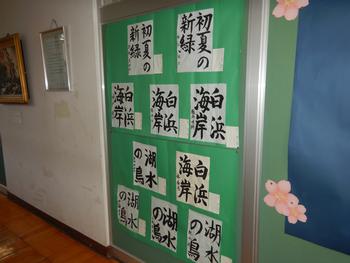 初夏の
新緑
初夏の
新緑
白浜
海岸
白浜
海岸
白浜
海岸
湖水
の鳥
白浜
海岸
湖水
の鳥
湖水
の鳥
湖水
の鳥